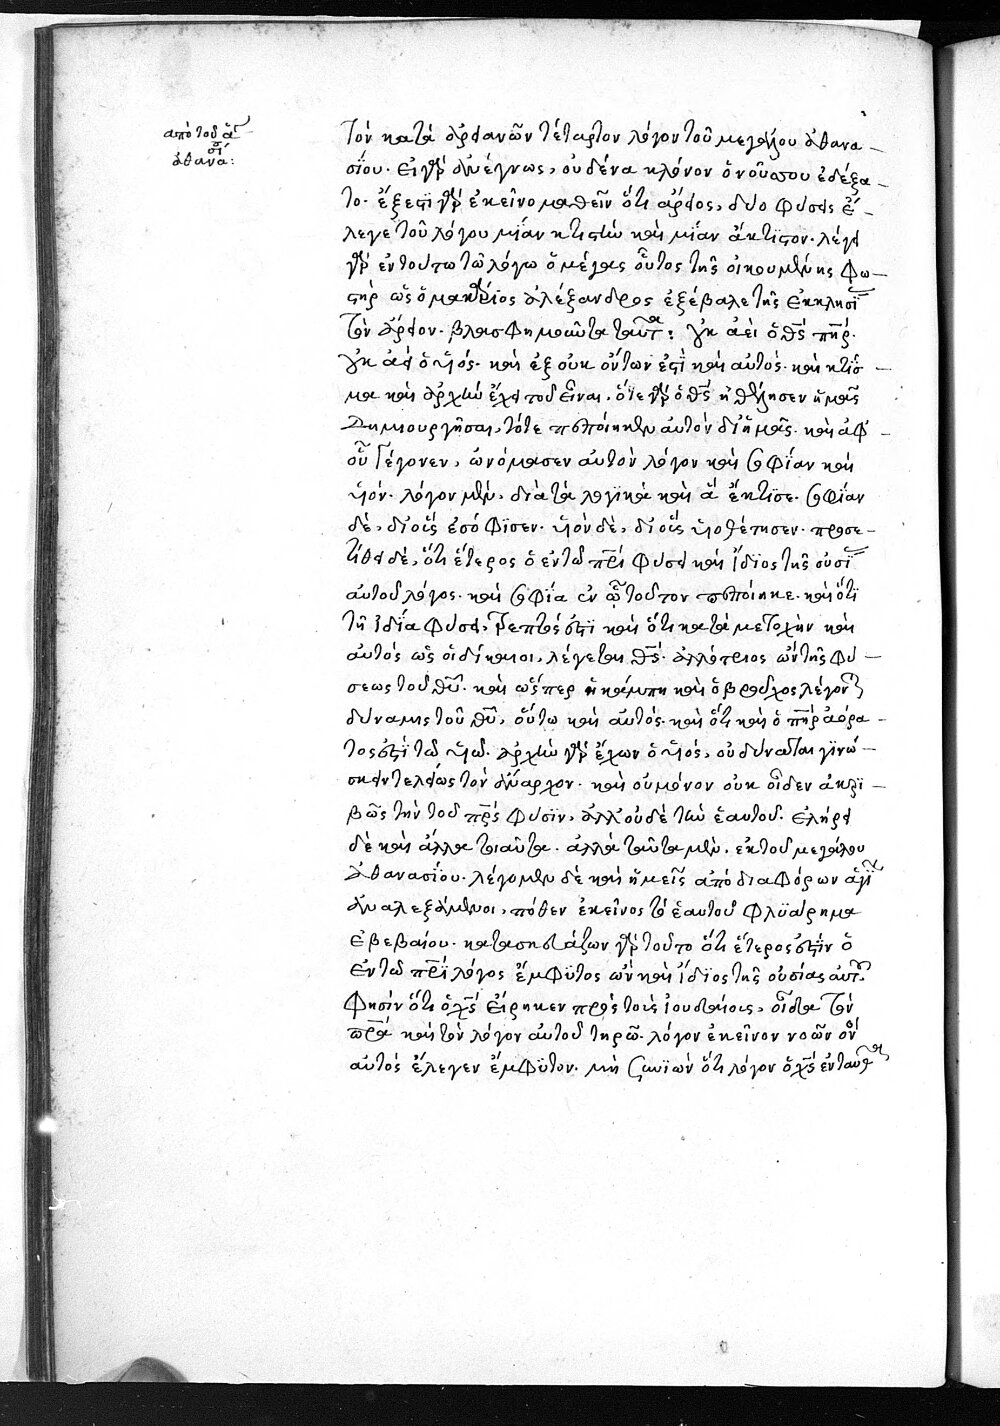 ἀπὸ τοῦ ἁ
ἀθανασί:
τὸν κατὰ ἀρειανῶν τέταρτον λόγον τοῦ μεγάλου ἀθανα
σίου. εἰ γὰρ ἀνέγνως, οὐδένα κλόνον ὁ νοῦς σου ἐδέξα
το. ἔξεστι γὰρ ἐκεῖνο μαθεῖν ὅτι ἄρειος, δύο φύσεις ἔ
λεγε τοῦ λόγου μίαν κτιστὴν καὶ μίαν ἄκτιστον. λέγει
γὰρ ἐν τούτω τῶ λόγω ὁ μέγας οὗτος τῆς οἰκουμένης φω
στὴρ ὡς ὁ μακάριος ἀλέξανδρος ἐξέβαλε τῆς ἐκκλησί
τὸν ἄρειον. βλασφημοῦντα ταῦτα: οὐκ ἀεὶ ὁ θς πηρ.
οὐκ ἀεὶ ὁ υἱός. καὶ ἐξ οὐκ ὄντων ἐστὶ καὶ αὐτός. καὶ κτίσ
μα καὶ ἀρχὴν ἔχει τοῦ εἶναι. ὅτε γὰρ ὁ θς ἠθέλησεν ἡμᾶς
δημιουργῆσαι, τότε πεποίηκεν αὐτὸν δι' ἡμᾶς. καὶ ἀφ
οὗ γέγονεν, ὠνόμασεν αὐτὸν λόγον καὶ σοφίαν καὶ
υἱόν. λόγον μὲν, διὰ τὰ λογικὰ καὶ ἃ ἔκτισε. σοφίαν
δὲ, δι' οἷς ἐσόφισεν. υἱὸν δὲ, δι' οἷς υἱοθέτησεν. προσε
τίθει δὲ, ὅτι ἕτερος ὁ ἐν τῶ πρι φύσει καὶ ἴδιος τῆς οὐσί
αὐτοῦ λόγος. καὶ σοφία ἐν ᾧ τοῦτον πεποίηκε. καὶ ὅτι
τῆ ἰδία φύσει, τρεπτός ἐστι καὶ ὅτι κατὰ μετοχὴν καὶ
αὐτὸς ὡς οἱ δίκαιοι, λέγεται θς. ἀλλότριος ὢν τῆς φύ
σεως τοῦ θυ. καὶ ὥσπερ ἡ κάμπη καὶ ὁ βροῦχος λέγον
δύναμις τοῦ θυ, οὕτω καὶ αὐτός. καὶ ὅτι καὶ ὁ πηρ ἀόρα
τός ἐστι τῶ υἱῶ. ἀρχὴν γὰρ ἔχων ὁ υἱὸς, οὐ δύναται γινώ
σκειν τελείως τὸν ἄναρχον. καὶ οὐ μόνον οὐκ οἶδεν ἀκρι
βῶς τὴν τοῦ πρς φύσιν, ἀλλ' οὐδὲ τὴν ἑαυτοῦ. ἐλήρει
δὲ καὶ ἄλλα τοιαῦτα. ἀλλὰ ταῦτα μὲν, ἐκ τοῦ μεγάλου
ἀθανασίου. λέγομεν δὲ καὶ ἡμεῖς ἀπὸ διαφόρων ἁγί
ἀναλεξάμενοι, πόθεν ἐκεῖνος τὸ ἑαυτοῦ φλυάρημα
ἐβεβαίου. κατασκευάζων γὰρ τοῦτο ὅτι ἕτερός ἐστιν ὁ
ἐν τῶ πρι λόγος ἔμφυτος ὢν καὶ ἴδιος τῆς οὐσίας αὐτ
φησὶν ὅτι ὁ χς εἴρηκεν πρὸς τοὺς ἰουδαίους, οἶδα τὸν
πρα καὶ τὸν λόγον αὐτοῦ τηρῶ. λόγον ἐκεῖνον νοῶν ὃν
αὐτὸς ἔλεγεν ἔμφυτον. μὴ συνιὼν ὅτι λόγον ὁ χς ἐνταῦθα